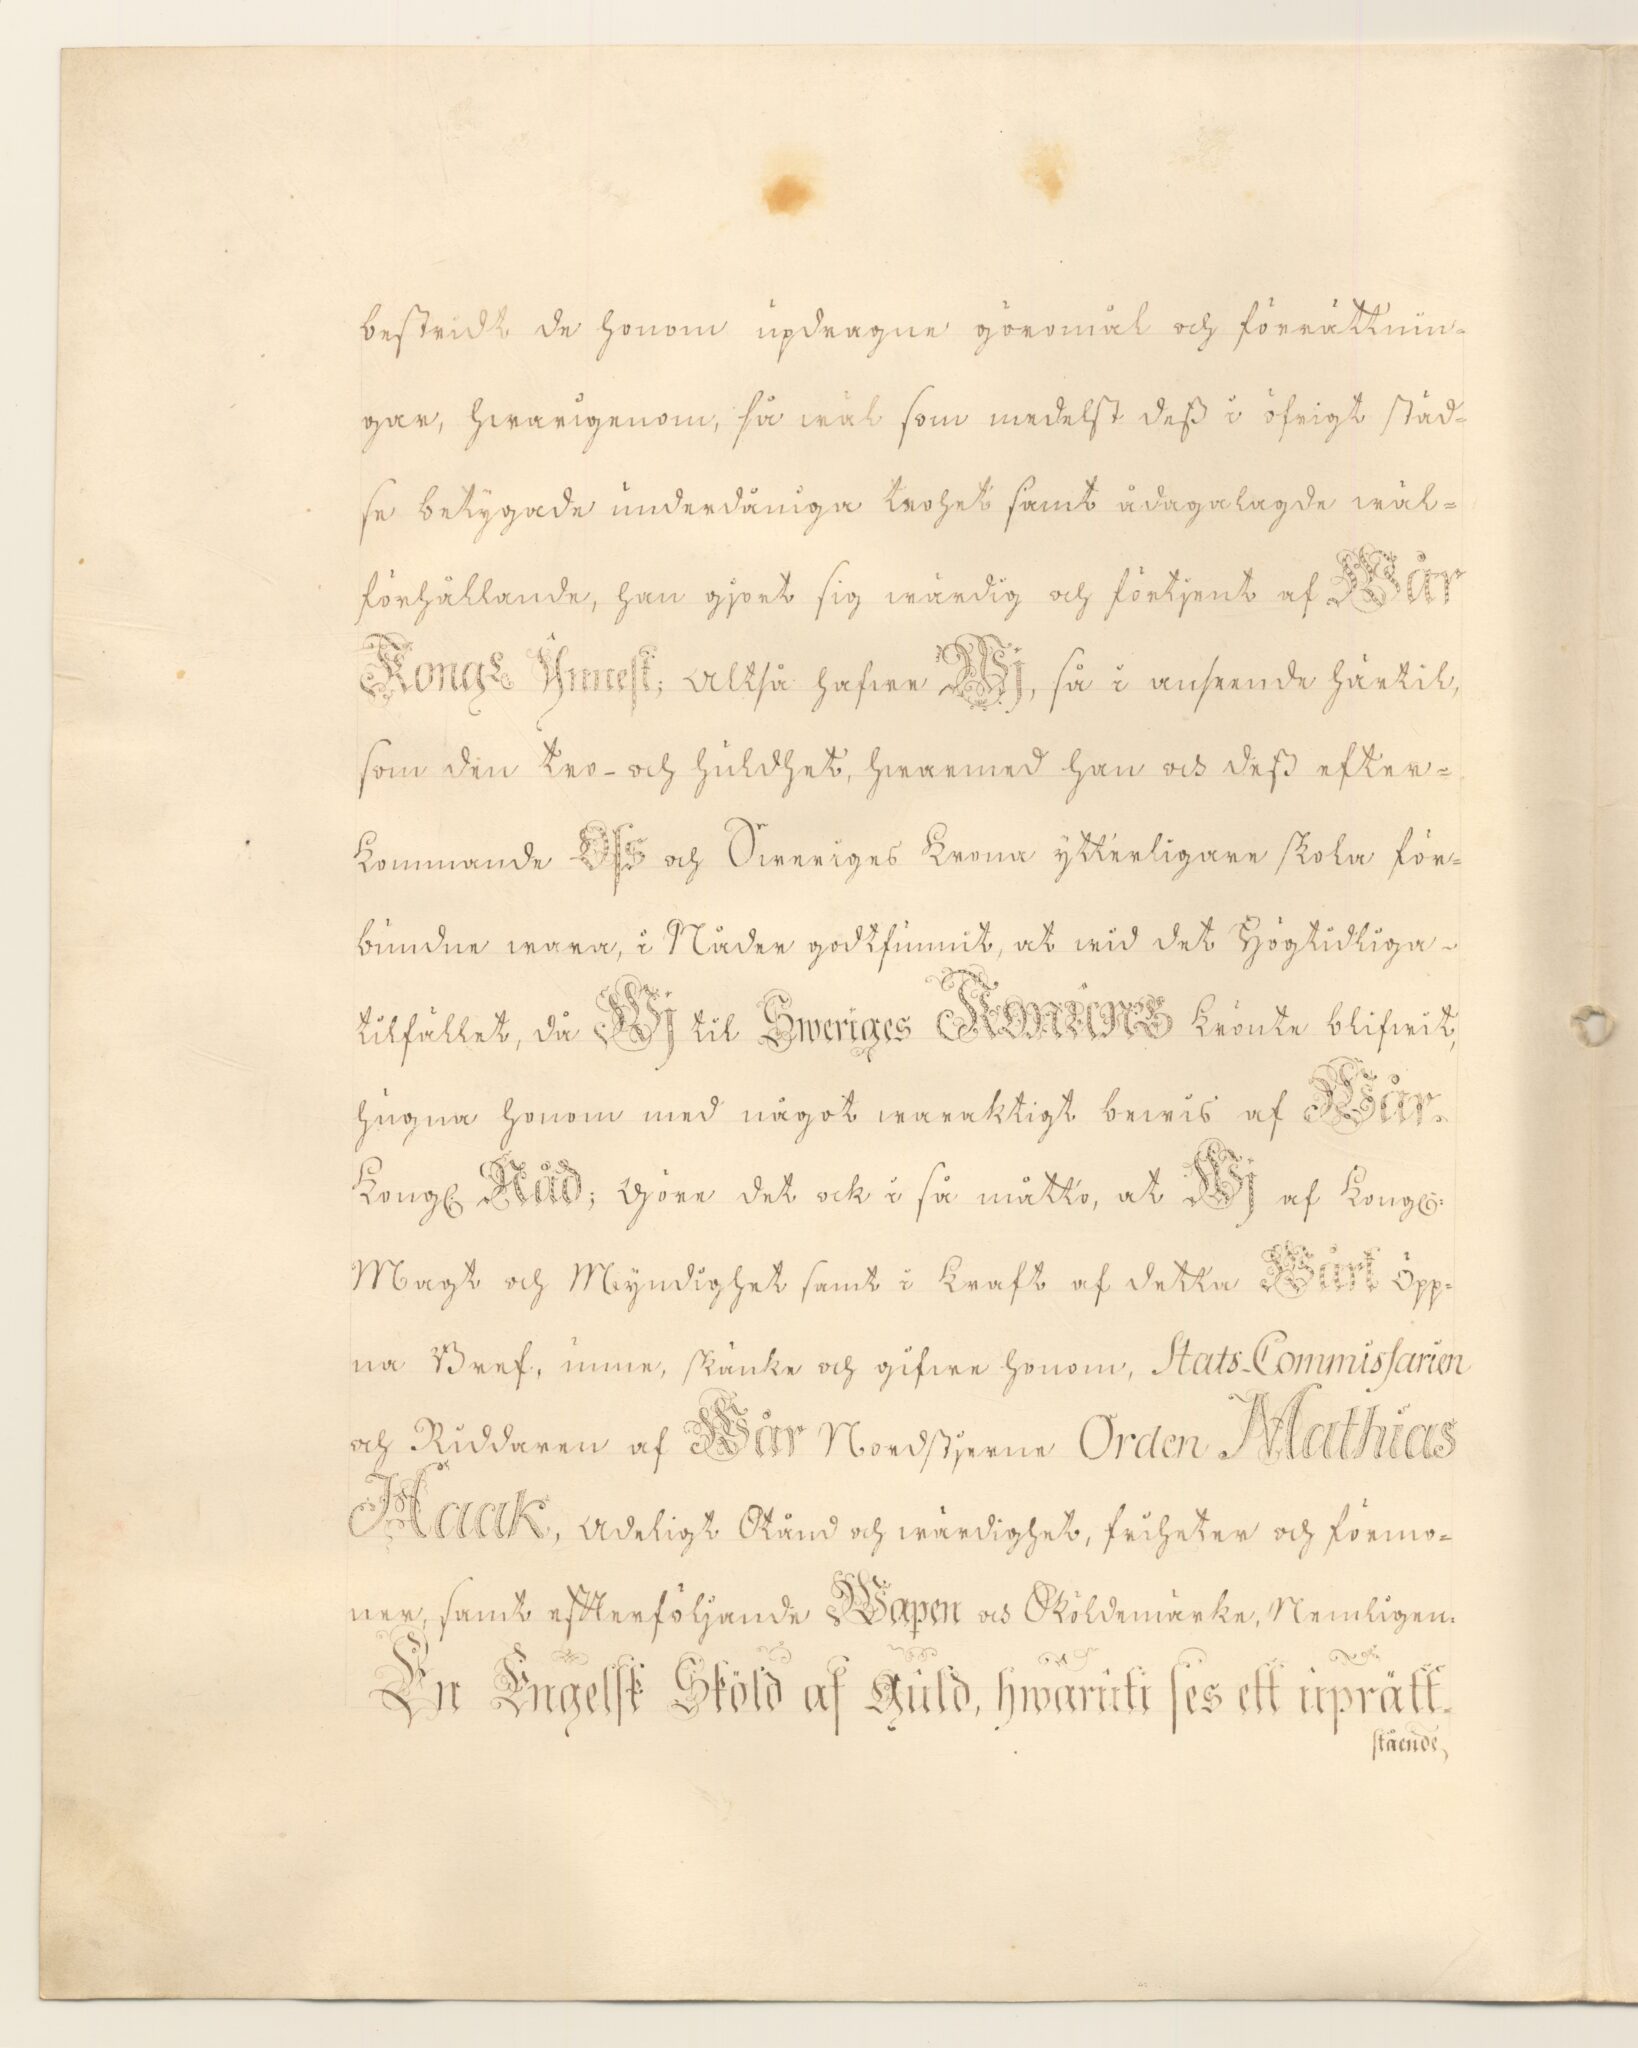 bestridt de honom updragne göromål och förrättnin-
gar, hwarigenom, så wäl som medelst deß i öfrigt städ-
se betygade underdåniga trohet samt ådagalagde wäl-
förhållande, han gjort sig wärdig och förtjent af Wår
Kongl Ynnest; Altså hafwe Wj, så i anseende härtil,
som den tro- och huldhet, hwarmed han ock deß efter-
kommande Oss och Sweriges Krona ytterligare skola för-
bundne wara, i Nåder godtfunnit, at wid det Högtidliga
tilfället, då Wj til Sweriges Konung krönte blifwit,
hugna honom med något waraktigt bewis af Wår
Kongl Nåd; Göre det ock i så måtto, at Wj af Kongl:
Magt och Myndighet samt i kraft af detta Wårt Öpp-
na Bref, unne, skänke och gifwe honom, Stats-Commissarien
och Riddaren af Wår Nordstjerne Orden Mathias
Haak, Adeligt Stånd och wärdighet, friheter och förmo-
ner, samt efterföljande Wapen ock Sköldemärke, Nemligen:
En Engelsk Sköld af Guld, hwaruti ses ett uprätt-
stående,